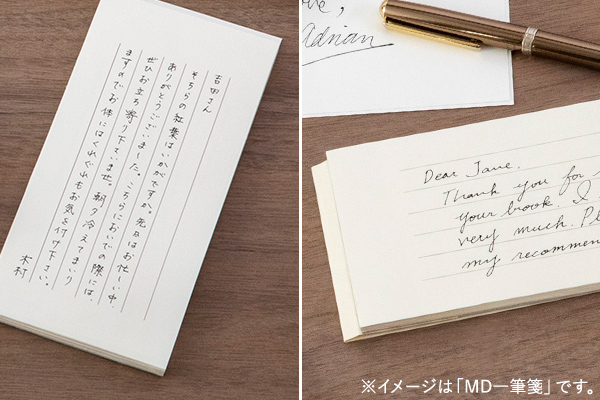 吉田さん
そちらの紅葉はいかがですか。先日はお忙しい中、
ありがとうございました。こちらにおいでの際には、
ぜひお立ち寄り下さいませ。朝夕冷えてまいり
ますのでお体にはくれぐれもお気を付け下さい。
木村
Adrian
Dear Jane,
Thank you for
your book. I
very much.
my recommen
※イメージは「MD一筆箋」です。